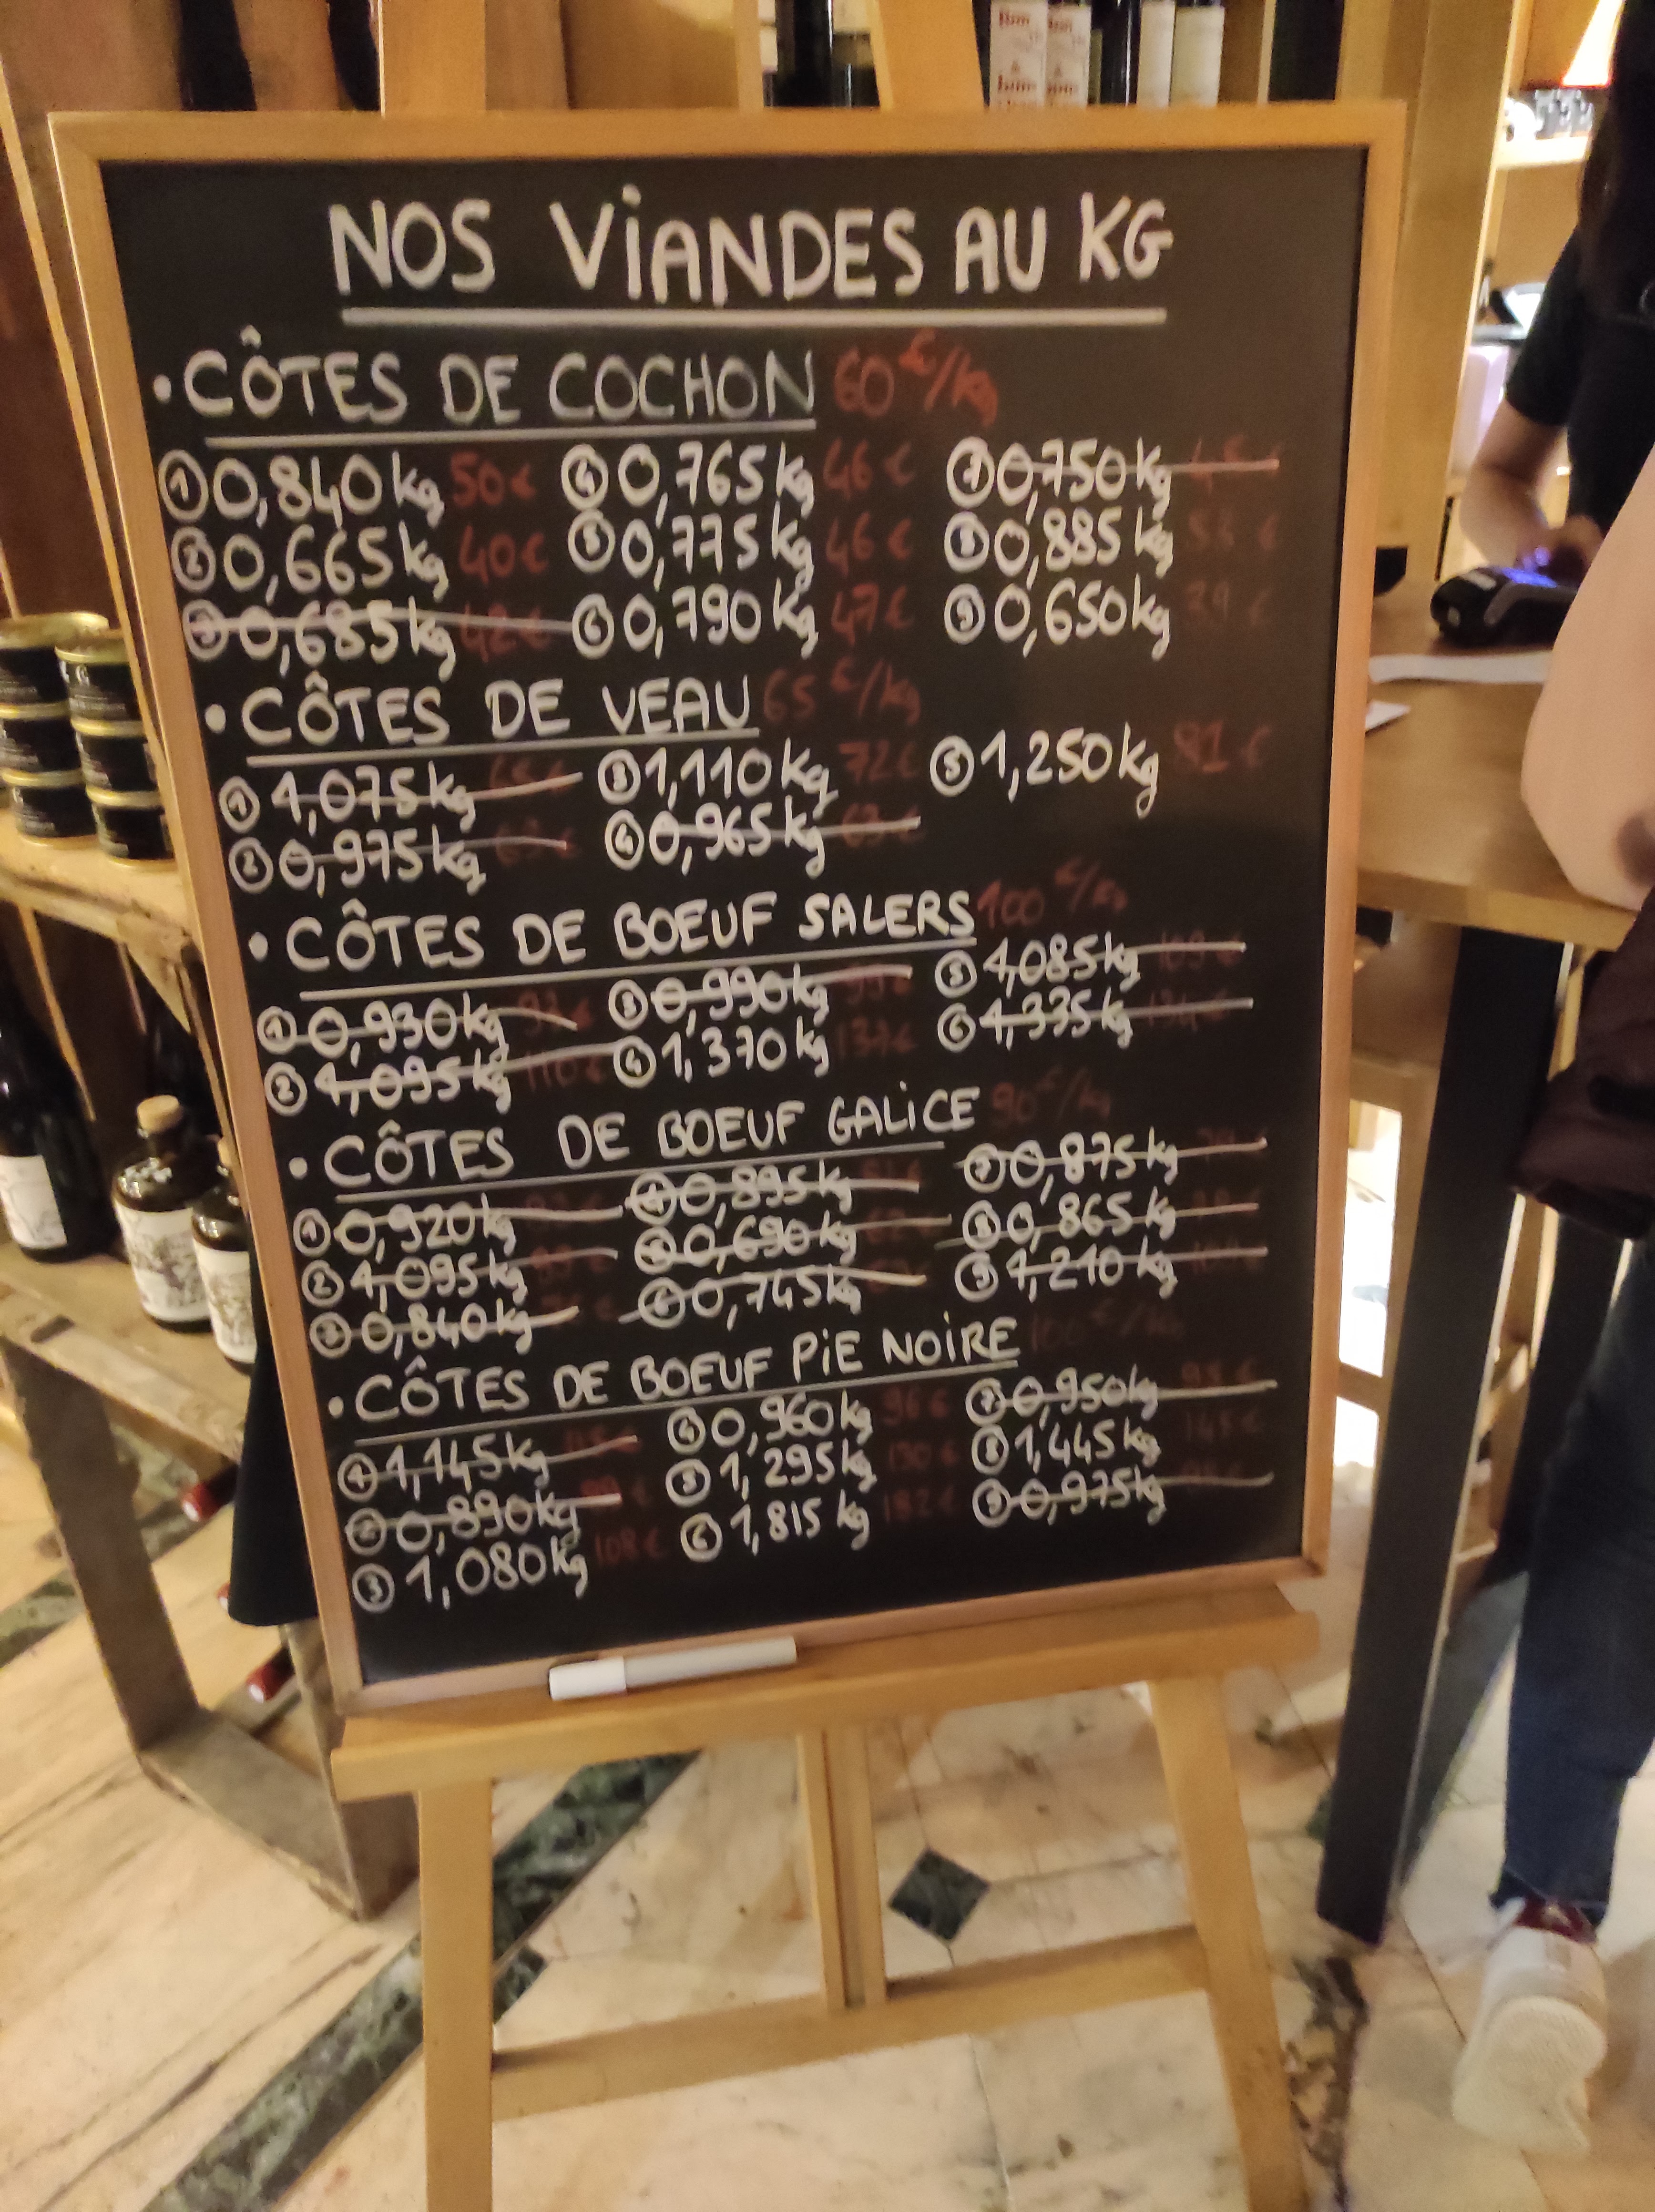 NOS ViANDES AU KG
• CÔTES DE COCHON 60€/kg
① 0,840kg 50€ ④ 0,765kg 46€ ⑦ 0,750kg
② 0,665kg 40€ ⑤ 0,775kg 46€ ⑧ 0,885kg 53€
③ 0,685kg 42€ ⑥ 0,790kg 47€ ⑨ 0,650kg 39€
• CÔTES DE VEAU 65€/kg
① 1,075kg ③ 1,110kg 72€ ⑤ 1,250kg 81€
② 0,975kg 63€ ④ 0,965kg 63€
• CÔTES DE BOEUF SALERS 100€/kg
① 0,930kg 93€ ③ 0,990kg 99€ ⑤ 1,085kg 109€
② 1,095kg 110€ ④ 1,370kg 137€ ⑥ 1,335kg 134€
• CÔTES DE BOEUF GALiCE 90€/kg
① 0,920kg ④ 0,895kg ⑦ 0,875kg
② 1,095kg ⑤ 0,690kg 62€ ⑧ 0,865kg
③ 0,840kg ⑥ 0,745kg ⑨ 1,210kg
• CÔTES DE BOEUF PiE NOiRE 100€/kg
① 1,145kg ④ 0,960kg 96€ ⑦ 0,950kg 95€
② 0,890kg ⑤ 1,295kg 130€ ⑧ 1,445kg 145€
③ 1,080kg 108€ ⑥ 1,815kg 182€ ⑨ 0,975kg